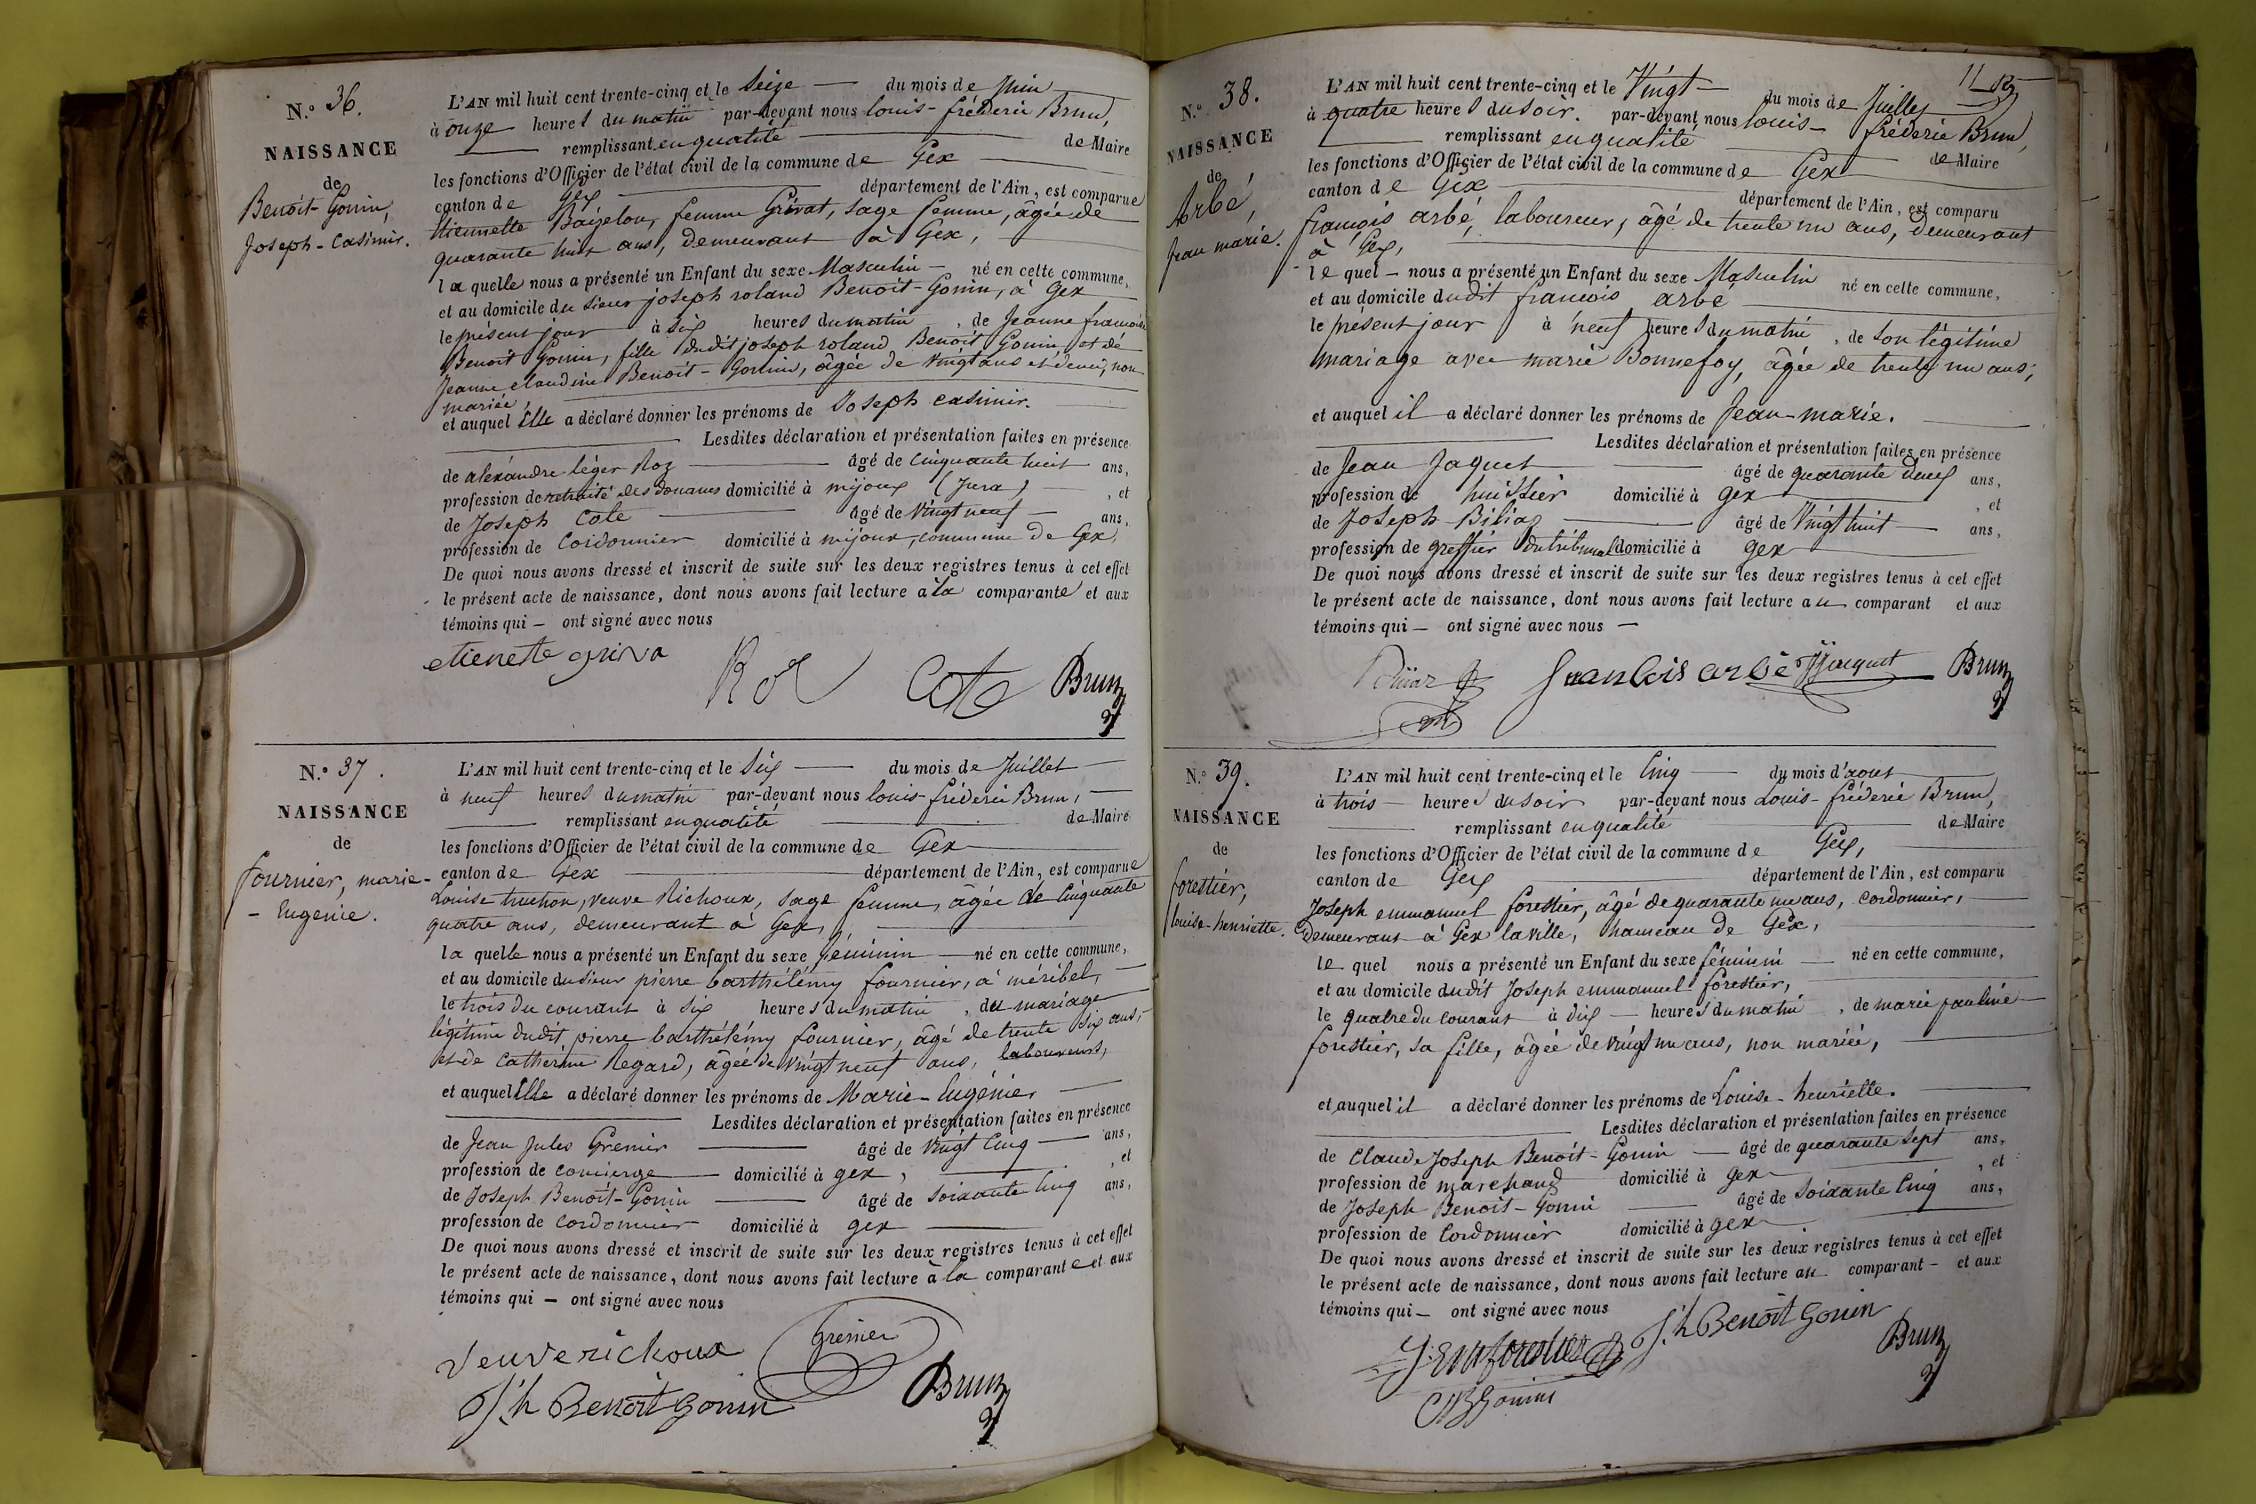 N.º 36.
NAISSANCE
de
Benoit-Gonin,
Joseph-Casimir.
L'AN mil huit cent trente-cinq et le Seize — du mois de Juin
à onze heures du matin par-devant nous louis-fréderic Brun,
remplissant en qualité de Maire
les fonctions d'Officier de l'état civil de la commune de Gex
canton de Gex département de l'Ain, est comparue
femme Grivat, sage femme, âgée de
quarante huit ans, demeurant à Gex,
la quelle nous a présenté un Enfant du sexe Masculin — né en cette commune,
et au domicile du sieur joseph roland Benoit-Gonin, à Gex
le présent jour à six heures du matin, de Jeanne francoise
Benoit Gonin, fille dudit joseph roland Benoit Gonin et de
Jeanne claudine Benoit-Gonin, âgée de vingt ans et demi, non
mariée,
et auquel Elle a déclaré donner les prénoms de Joseph casimir.
Lesdites déclaration et présentation faites en présence
de alexandre léger Roz âgé de cinquante huit ans,
profession de retraité des douanes domicilié à mijoux (Jura), et
de Joseph Cote âgé de vingt neuf — ans,
profession de Cordonnier domicilié à mijoux, commune de Gex,
De quoi nous avons dressé et inscrit de suite sur les deux registres tenus à cet effet
le présent acte de naissance, dont nous avons fait lecture à la comparante et aux
témoins qui — ont signé avec nous
etienete griva Roz Cote Brun
N.º 37.
NAISSANCE
de
fournier, marie-
-Eugenie.
L'AN mil huit cent trente-cinq et le Six — du mois de Juillet
à neuf heures du matin par-devant nous louis-fréderic Brun,
remplissant en qualité de Maire
les fonctions d'Officier de l'état civil de la commune de Gex
canton de Gex département de l'Ain, est comparue
Louise truchon, veuve Richoux, sage femme, âgée de cinquante
quatre ans, demeurant à Gex,
la quelle nous a présenté un Enfant du sexe féminin — né en cette commune,
et au domicile du sieur pierre barthélémy fournier, à méribel,
le trois du courant à six heures du matin, du mariage
légitime dudit pierre barthélémy fournier, âgé de trente six ans,
et de Catherine Regard, âgée de vingt neuf ans, laboureurs,
et auquel Elle a déclaré donner les prénoms de Marie-Eugénie
Lesdites déclaration et présentation faites en présence
de Jean Jules Grenier âgé de vingt cinq — ans,
profession de concierge — domicilié à gex, et
de Joseph Benoit-Gonin âgé de soixante cinq ans,
profession de cordonnier domicilié à gex
De quoi nous avons dressé et inscrit de suite sur les deux registres tenus à cet effet
le présent acte de naissance, dont nous avons fait lecture à la comparante et aux
témoins qui — ont signé avec nous
veuve richoux Grenier
J.h Benoit gonin Brun
11
N.º 38.
NAISSANCE
de
Arbé,
Jean marie.
L'AN mil huit cent trente-cinq et le Vingt — du mois de Juillet
à quatre heures du soir. par-devant nous louis-fréderic Brun,
remplissant en qualité de Maire
les fonctions d'Officier de l'état civil de la commune de Gex
canton de Gex département de l'Ain, est comparu
françois arbé, laboureur, âgé de trente un ans, demeurant
à Gex,
le quel — nous a présenté un Enfant du sexe Masculin né en cette commune,
et au domicile dudit francois arbé
le présent jour à neuf heures du matin, de son légitime
mariage avec marie Bonnefoy, âgée de trente un ans,
et auquel il a déclaré donner les prénoms de Jean-marie.
Lesdites déclaration et présentation faites en présence
de Jean Jaquet âgé de quarante deux ans,
profession de huissier domicilié à gex, et
de Joseph âgé de Vingt huit — ans,
profession de greffier du tribunal domicilié à gex
De quoi nous avons dressé et inscrit de suite sur les deux registres tenus à cet effet
le présent acte de naissance, dont nous avons fait lecture au comparant et aux
témoins qui — ont signé avec nous —
francois arbé Jacquet Brun
N.º 39.
NAISSANCE
de
forestier,
louise-henriette.
L'AN mil huit cent trente-cinq et le Cinq — du mois d'aout
à trois — heures du soir par-devant nous Louis-fréderic Brun,
remplissant en qualité de Maire
les fonctions d'Officier de l'état civil de la commune de Gex,
canton de Gex département de l'Ain, est comparu
Joseph emmanuel forestier, âgé de quarante un ans, cordonnier,
demeurant à Gex la ville, hameau de Gex,
le quel nous a présenté un Enfant du sexe féminin — né en cette commune,
et au domicile dudit Joseph emmanuel forestier,
le quatre du courant à dix — heures du matin, de marie pauline
forestier, sa fille, âgée de vingt un ans, non mariée,
et auquel il a déclaré donner les prénoms de Louise-henriette.
Lesdites déclaration et présentation faites en présence
de Claude Joseph Benoit-Gonin — âgé de quarante sept ans,
profession de marchand domicilié à gex, et
de Joseph Benoit-Gonin âgé de soixante cinq ans,
profession de Cordonnier domicilié à gex
De quoi nous avons dressé et inscrit de suite sur les deux registres tenus à cet effet
le présent acte de naissance, dont nous avons fait lecture au comparant — et aux
témoins qui — ont signé avec nous
J. Em forestier J.h Benoit gonin Brun